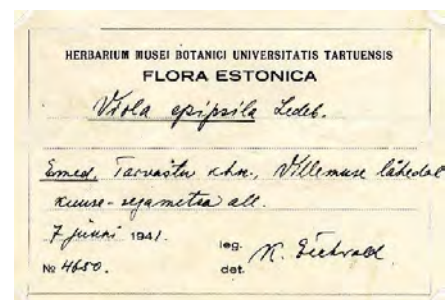 HERBARIUM MUSEI BOTANICI UNIVERSITATIS TARTUENSIS
FLORA ESTONICA
Viola epipsila Ledeb.
Emed. Tarvastu khn., Villemuse lähedal
kuuse-segametsa all.
7 juuni 1941.
leg. K. Eichwald
№ 4650. det.